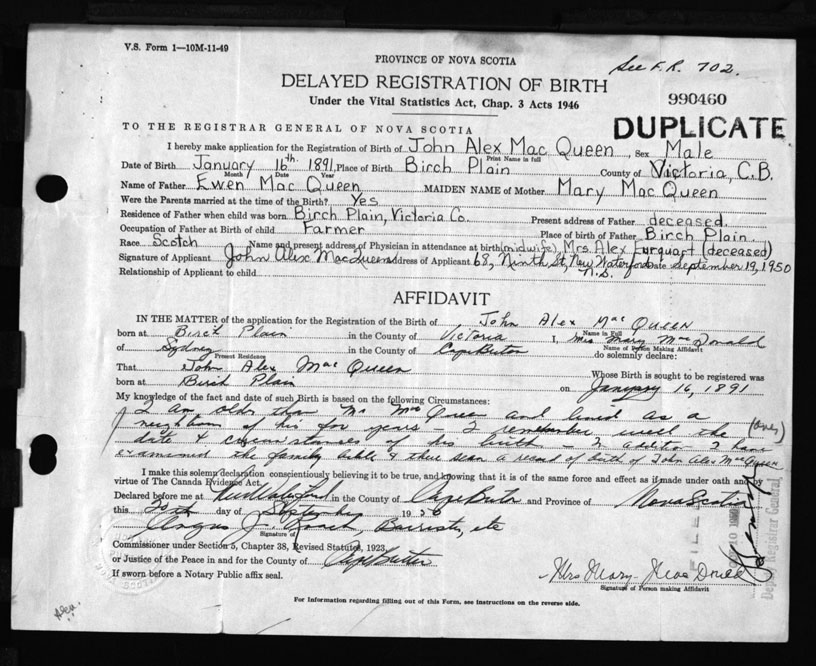 V.S. Form 1—10M-11-49
PROVINCE OF NOVA SCOTIA
See F.R. 702.
DELAYED REGISTRATION OF BIRTH
Under the Vital Statistics Act, Chap. 3 Acts 1946
990460
TO THE REGISTRAR GENERAL OF NOVA SCOTIA
DUPLICATE
I hereby make application for the Registration of Birth of John Alex Mac Queen, Sex Male
Print Name in full
Date of Birth January 16th. 1891, Place of Birth Birch Plain County of Victoria, C.B.
Month Date Year
Name of Father Ewen Mac Queen MAIDEN NAME of Mother Mary Mac Queen
Were the Parents married at the time of the Birth? Yes
Residence of Father when child was born Birch Plain, Victoria Co. Present address of Father deceased.
Occupation of Father at Birth of child Farmer Place of birth of Father Birch Plain.
Race Scotch Name and present address of Physician in attendance at birth (midwife) Mrs. Alex (deceased)
Signature of Applicant John Alex MacQueen Address of Applicant 68, Ninth St, New Waterford Date September 19, 1950
N.S.
Relationship of Applicant to child
AFFIDAVIT
IN THE MATTER of the application for the Registration of Birth of John Alex Mac Queen
Name in Full
born at Birch Plain in the County of Victoria I, Mrs Mary Mac Donald
Name of Person Making Affidavit
of Sydney in the County of Cape Breton do solemnly declare:
Present Residence
That John Alex Mac Queen Whose Birth is sought to be registered was
born at Birch Plain on January 16, 1891
My knowledge of the fact and date of such Birth is based on the following Circumstances:
I am older than Mr Mac Queen and lived as a
neighbour of his for years - I remember well the (over)
date & circumstances of his birth - In addition I have
examined the family bible & there seen a record of birth of John Alex MacQueen
I make this solemn declaration conscientiously believing it to be true, and knowing that it is of the same force and effect as if made under oath and by
virtue of The Canada Evidence Act.
Declared before me at New Waterford in the County of Cape Breton and Province of Nova Scotia
this 20th day of September 1950
Angus J. Barrister, etc
Signature of
Commissioner under Section 5, Chapter 38, Revised Statutes, 1923
or Justice of the Peace in and for the County of Cape Breton
If sworn before a Notary Public affix seal.
Mrs Mary Mac Donald
Signature of Person making Affidavit
FILED
Deputy Registrar General
For Information regarding filling out of this Form, see instructions on the reverse side.